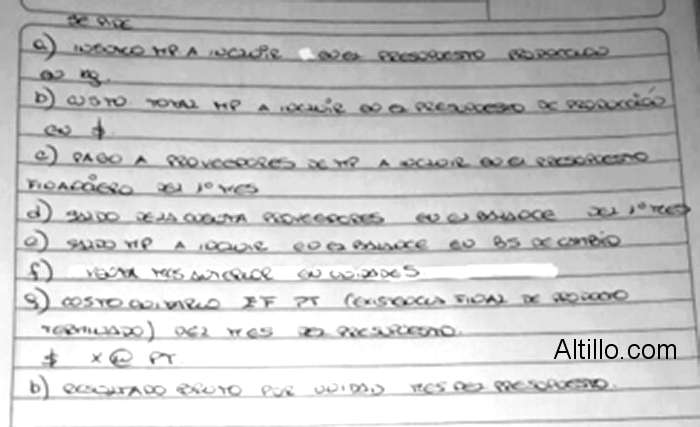 SE PIDE
a) INGRESO MP A INCLUIR EN EL PRESUPUESTO PRODUCCIÓN
EN Kg.
b) COSTO TOTAL MP A INCLUIR EN EL PRESUPUESTO DE PRODUCCIÓN
EN $
c) PAGO A PROVEEDORES DE MP A INCLUIR EN EL PRESUPUESTO
FINANCIERO DEL 1º MES
d) SALDO DE LA CUENTA PROVEEDORES EN EL BALANCE DEL 1º MES
e) SALDO MP A INCLUIR EN EL BALANCE EN BS DE CAMBIO
f) VENTA MES ANTERIOR EN UNIDADES
g) COSTO UNITARIO EF PT (EXISTENCIA FINAL DE PRODUCTO
TERMINADO) DEL MES DEL PRESUPUESTO.
$ x @ PT
Altillo.com
h) RESULTADO BRUTO POR UNIDAD MES DEL PRESUPUESTO.